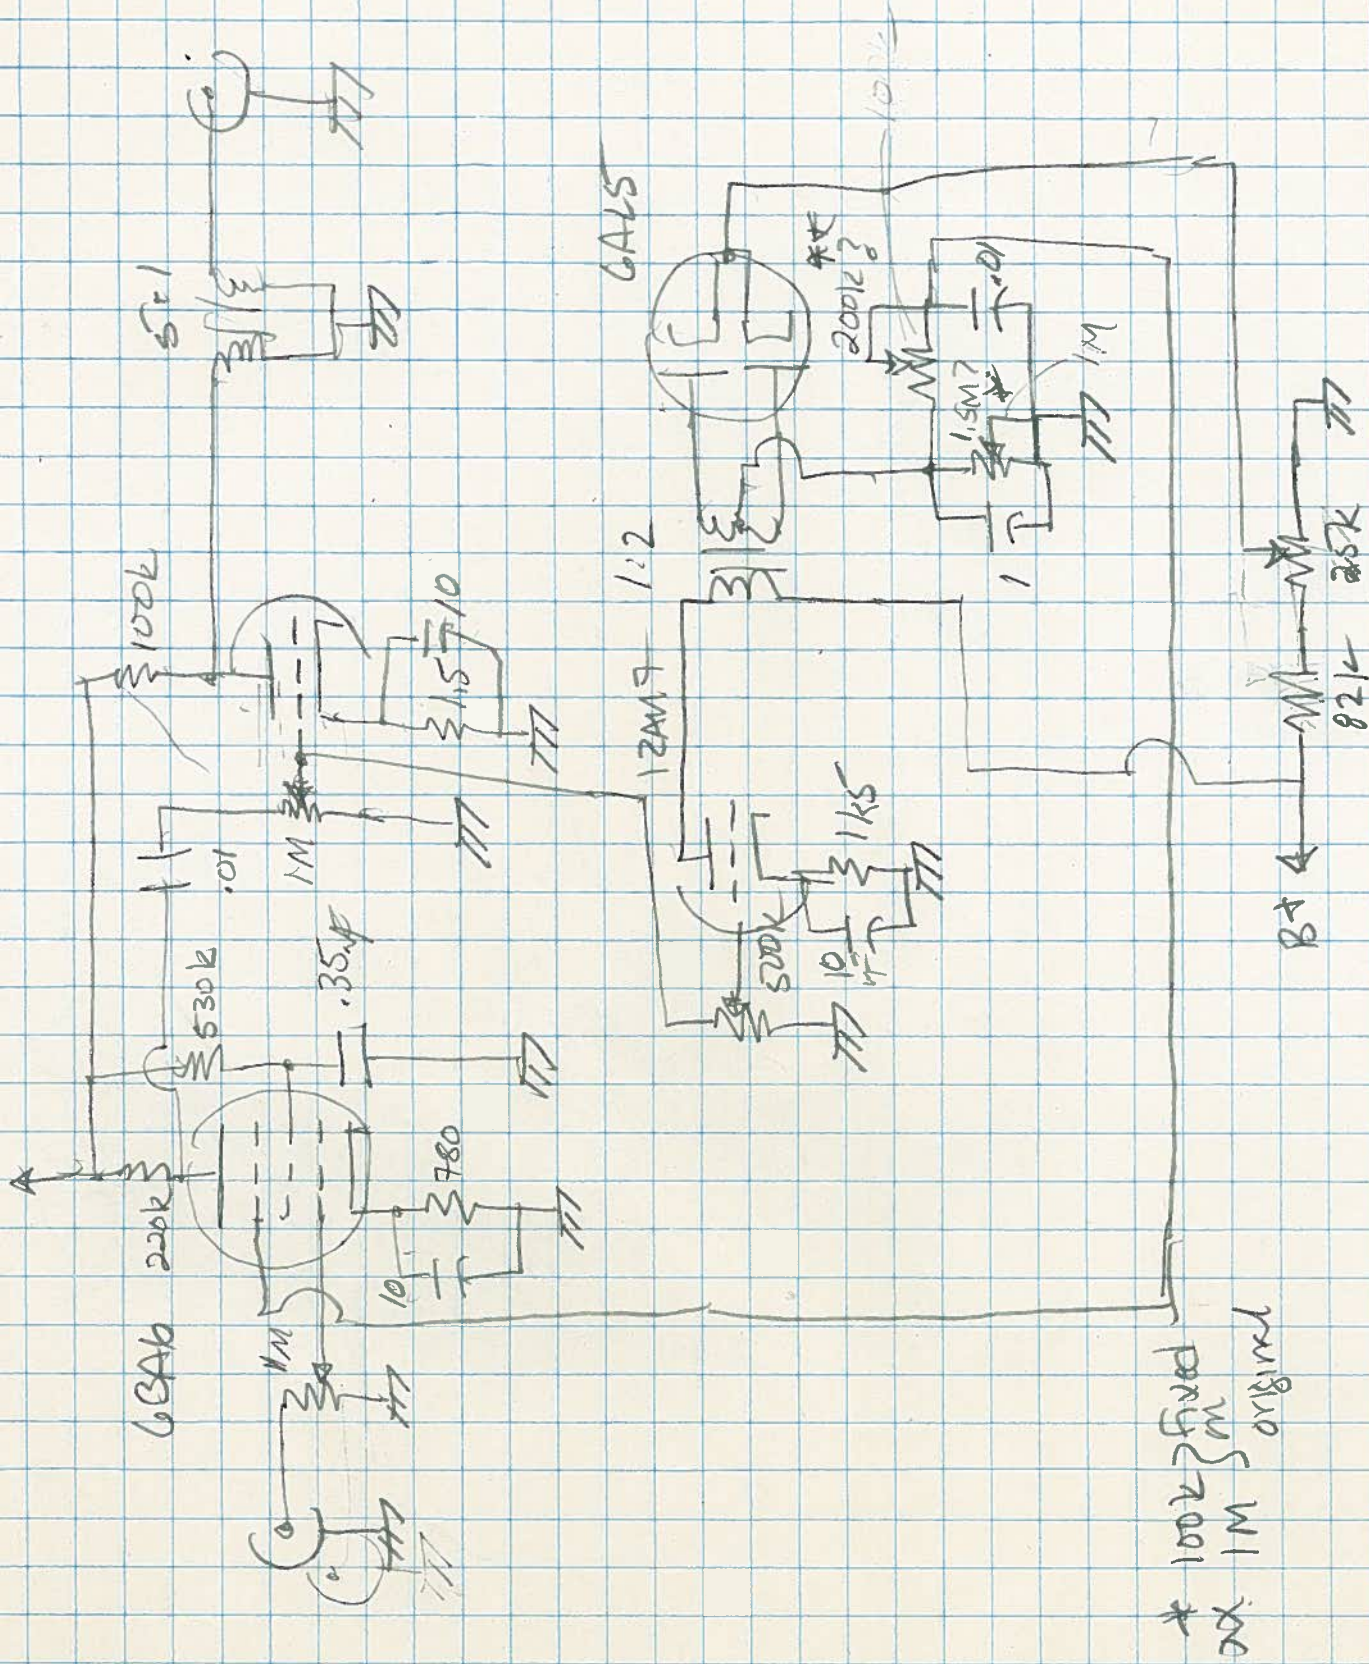 6BA6
220k
1M
10
780
530k
.35uf
.01
1M
100k
1.5
10
5:1
12AU7
500k
10
1k5
1:2
6AL5
**
200k?
100k
.01
1.5M?
*
1M
1
B+
82k
25k
* 100k } fixed
** 1M } in
original